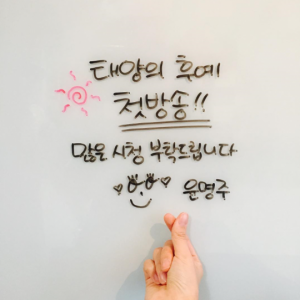 태양의 후예
첫방송!!
많은 시청 부탁드립니다
윤명주